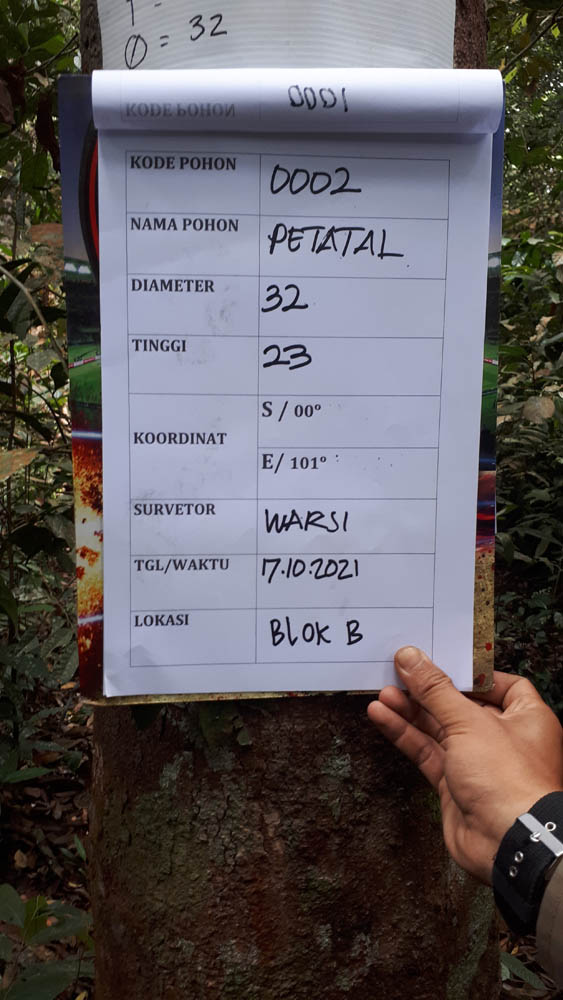 Ø = 32
KODE POHON
0001
KODE POHON 0002
NAMA POHON PETATAL
DIAMETER 32
TINGGI 23
KOORDINAT S / 00°
E/ 101°
SURVETOR WARSI
TGL/WAKTU 7.10.2021
LOKASI BLOK B